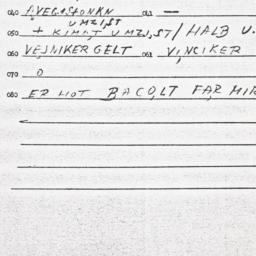 040 A,VEC,STONKN 041 —
UMZI,ST
050 + KIMAT UMZI,ST / HALB U.
060 VEJNIKERGELT 061 V,NCIKER
070 0
080 ER HOT BACO,LT FAR MIR